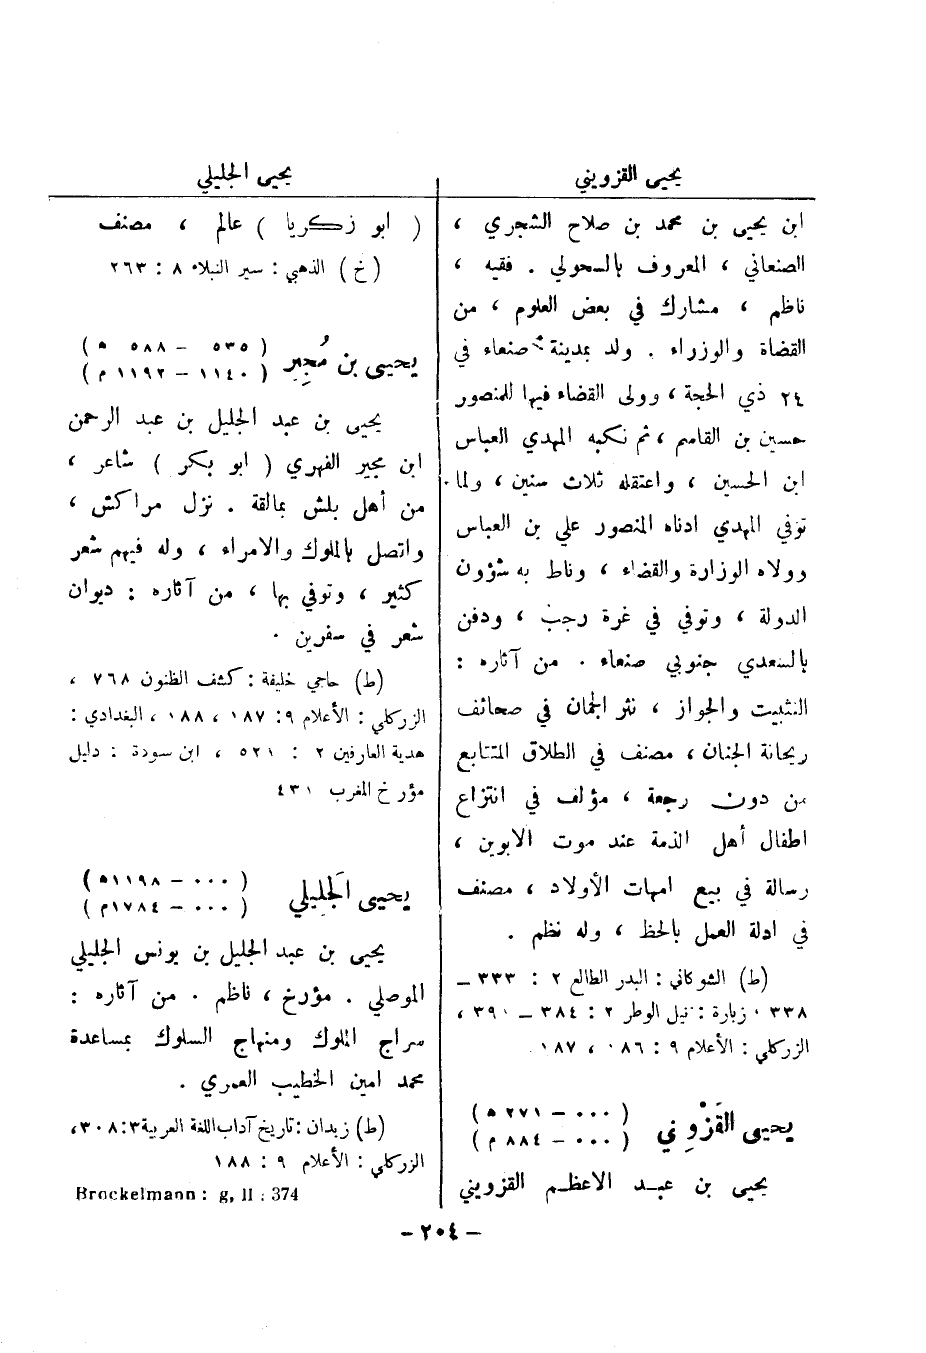 يحيى القزويني
ابن يحيى بن محمد بن صلاح الشجري ،
الصنعاني ، المعروف بالسحولي . فقيه ،
ناظم ، مشارك في بعض العلوم ، من
القضاة والوزراء . ولد بمدينة صنعاء في
٢٤ ذي الحجة ، وولى القضاء فيها للمنصور
حسين بن القاسم ، ثم نكبه المهدي العباس
ابن الحسين ، واعتقله ثلاث سنين ، ولما
توفي المهدي ادناه المنصور علي بن العباس
وولاه الوزارة والقضاء ، وناط به شؤون
الدولة ، وتوفي في غرة رجب ، ودفن
بالسعدي جنوبي صنعاء . من آثاره :
التثبيت والجواز ، نثر الجمان في صحائف
ريحانة الجنان ، مصنف في الطلاق المتتابع
من دون رجعة ، مؤلف في انتزاع
اطفال أهل الذمة عند موت الابوين ،
رسالة في بيع امهات الأولاد ، مصنف
في ادلة العمل بالحظ ، وله نظم .
(ط) الشوكاني : البدر الطالع ٢ : ٣٣٣ –
٣٣٨ . زبارة : نيل الوطر ٢ : ٣٨٤ – ٣٩٠ ،
الزركلي : الأعلام ٩ : ٠٨٦ ، ١٨٧
يحيى القَزْوِيني ( ٠٠٠ – ٢٧١ ه )
( ٠٠٠ – ٨٨٤ م )
يحيى بن عبد الاعظم القزويني
يحيى الجليلي
( ابو زكريا ) عالم ، مصنف
(خ) الذهبي : سير النبلاء ٨ : ٢٦٣
يحيى بن مُجِير ( ٥٣٥ – ٥٨٨ ه )
( ١١٤٠ – ١١٩٢ م )
يحيى بن عبد الجليل بن عبد الرحمن
ابن مجير الفهري ( ابو بكر ) شاعر ،
من أهل بلش بمالقة . نزل مراكش ،
واتصل بالملوك والامراء ، وله فيهم شعر
كثير ، وتوفي بها ، من آثاره : ديوان
شعر في سفرين .
(ط) حاجي خليفة : كشف الظنون ٧٦٨ ،
الزركلي : الأعلام ٩ : ١٨٧ ، ١٨٨ ، البغدادي :
هدية العارفين ٢ : ٥٢١ ، ابن سودة : دليل
مؤرخ المغرب ٤٣١
يحيى الجَليلي ( ٠٠٠ – ١١٩٨ه )
( ٠٠٠ – ١٧٨٤م )
يحيى بن عبد الجليل بن يونس الجليلي
الموصلي . مؤرخ ، ناظم . من آثاره :
سراج الملوك ومنهاج السلوك بمساعدة
محمد امين الخطيب العمري .
(ط) زيدان : تاريخ آداب اللغة العربية ٣ : ٣٠٨ ،
الزركلي : الأعلام ٩ : ١٨٨
Brockelmann : g, II : 374
– ٢٠٤ –